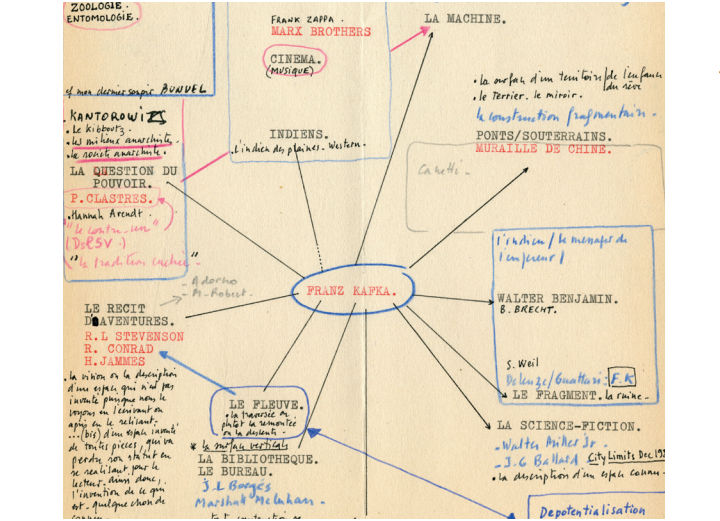 ZOOLOGIE.
ENTOMOLOGIE.
cf mon dernier soupir BUNUEL
FRANK ZAPPA.
MARX BROTHERS
CINEMA.
(MUSIQUE)
INDIENS.
.l'indien des plaines. Western.
LA MACHINE.
.le terrier. le miroir.
la construction fragmentaire.
PONTS/SOUTERRAINS.
MURAILLE DE CHINE.
Canetti.
.KANTOROWITZ
.le kibboutz.
.les milieux anarchiste.
.la société anarchiste.
LA QUESTION DU
POUVOIR.
P.CLASTRES.
.Hannah Arendt.
"le contr'un"
"la tradition cachée"
- Adorno
- M. Robert.
FRANZ KAFKA.
l'indien / le messager de
l'empereur /
WALTER BENJAMIN.
B. BRECHT.
S. Weil
Deleuze/Guattari. F.K
LE FRAGMENT. la ruine.
LE RECIT
D'AVENTURES.
R.L STEVENSON
R. CONRAD
H.JAMMES
.la vision ou la description
d'un espace qui n'est pas
inventé puisque nous le
voyons en l'écrivant ou
après en le relisant.
...(bis) d'un espace inventé
de toutes pièces, qui va
perdre son statut en
se réalisant, pour le
lecteur. dans donc,
l'invention de ce qui
est. quelque chose de
LE FLEUVE.
.la traversée ou
plutôt la remontée
ou la descente.
* la surface verticale
LA BIBLIOTHEQUE.
LE BUREAU.
J.L Borgès
Marshall McLuhan.
LA SCIENCE-FICTION.
- Walter Miller Jr.
- J.G Ballard City Limits Dec 19
.la description d'un espace connu.
Depotentialisation